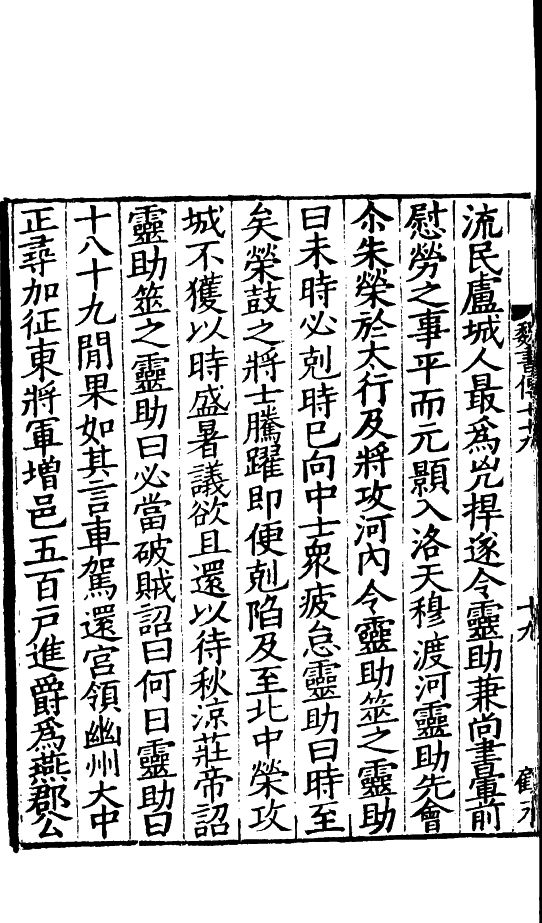 魏書傳七十九
十九
流民盧城人最爲兇捍遂令靈助兼尚書軍前
慰勞之事平而元顥入洛天穆渡河靈助先會
尒朱榮於太行及將攻河內令靈助筮之靈助
曰未時必剋時已向中士衆疲怠靈助曰時至
矣榮鼓之將士騰躍即便剋陷及至北中榮攻
城不獲以時盛暑議欲且還以待秋涼莊帝詔
靈助筮之靈助曰必當破賊詔曰何日靈助曰
十八十九閒果如其言車駕還宮領幽州大中
正尋加征東將軍增邑五百戶進爵爲燕郡公